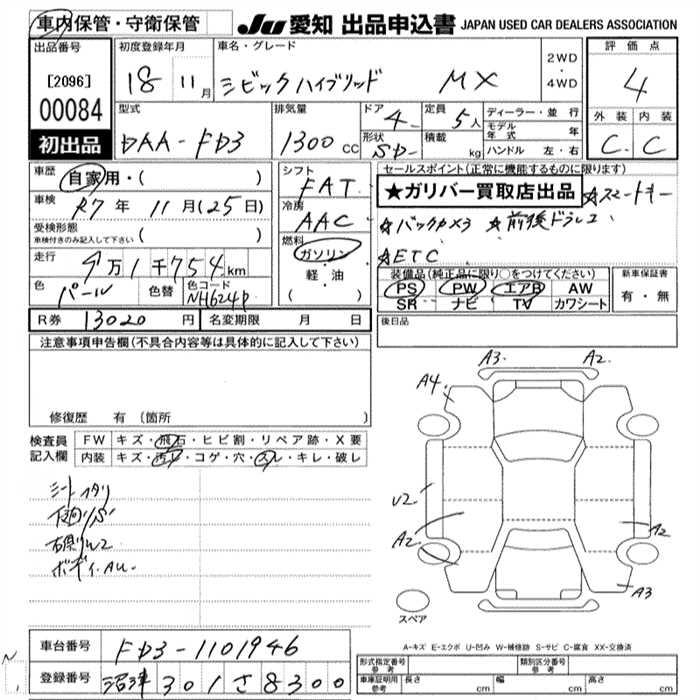 車内保管・守衛保管
JU 愛知 出品申込書 JAPAN USED CAR DEALERS ASSOCIATION
出品番号
[2096]
00084
初出品
初度登録年月
18 11月
車名・グレード
シビックハイブリッド MX
2WD
・
4WD
評価点
4
外装 内装
C C
型式
DAA-FD3
排気量
1300 CC
ドア
4
定員
5人
形状
SD
積載
kg
ディーラー・並行
モデル年式 年
ハンドル 左・右
車歴
自家用・( )
車検
R7年 11月(25日)
受検形態
車検付きのみ記入して下さい ( )
走行
9万1千754km
色
パール
色替
色コード
NH624P
シフト
FAT
冷房
AAC
燃料
ガソリン
軽・油
( )
セールスポイント(正常に機能するものに限り)
★ガリバー買取店出品
☆スマートキー
☆バックカメラ ☆前後ドラレコ
☆ETC
装備品(純正品に限り○をつけてください)
PS PW エアB AW
SR ナビ TV カワシート
新車保証書
有・無
R券 13020円
名変期限 月 日
後日品
注意事項申告欄(不具合内容等は具体的に記入して下さい)
修復歴 有(箇所
検査員記入欄
FW キズ・飛石・ヒビ割・リペア跡・X要
内装 キズ・汚レ・コゲ・穴・スレ・キレ・破レ
シートヘタリ
下廻りS
ボディAU
A3 A2
A4
U2
A2
A2
A3
スペア
A-キズ E-エクボ U-凹み W-補修跡 S-サビ C-腐食 XX-交換済
車台番号 FD3-1101946
登録番号 沼津 301 さ 8300
形式指定番号 参考
類別区分番号 参考
車庫証明用 参考 長さ cm 幅 cm 高さ cm